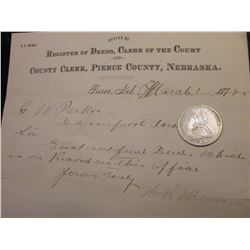 OFFICE OF
REGISTER OF DEEDS, CLERK OF THE COURT
AND
COUNTY CLERK, PIERCE COUNTY, NEBRASKA.
Pierce, Neb., March 1 187
G W Parker
Davenport Iowa
Sir
Enclosed find Deed which
is on Record in this Office
Yours truly